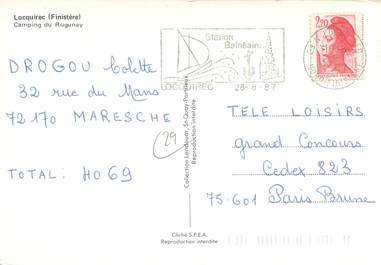 Locquirec (Finistère)
Camping du Rugunay
Station
Balnéaire
LOCQUIREC
28-8-87
2,20
DROGOU Colette
32 rue du Mans
72170 MARESCHE
29
TOTAL: 4069
Collection Landouar, St-Quay-Portrieux
Reproduction interdite
TELE LOISIRS
grand Concours
Cedex 823
75-601 Paris Brune
Cliché S.P.E.A.
Reproduction interdite